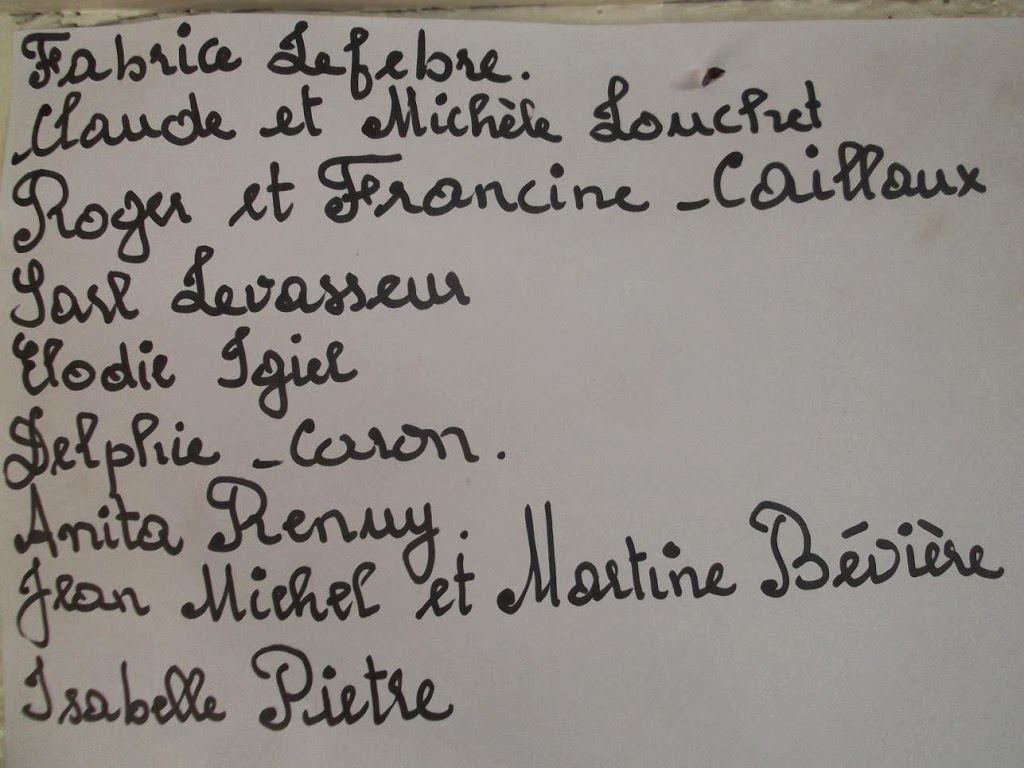 Fabrice Lefebre.
Claude et Michèle Louchet
Roger et Francine Caillaux
Sarl Levasseur
Elodie Igiel
Delphie Caron.
Anita Renuy.
Jean Michel et Martine Bévière
Isabelle Pietre